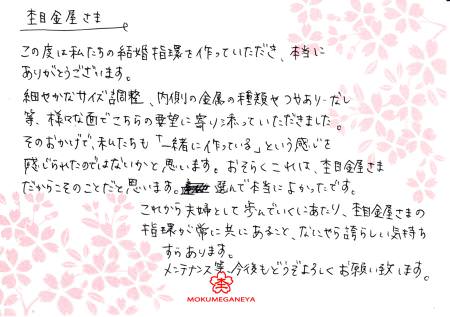 杢目金屋さま
この度は私たちの結婚指環を作っていただき、本当に
ありがとうございます。
細やかなサイズ調整、内側の金属の種類やつやありーなし
等、様々な面でこちらの要望に寄り添っていただきました。
そのおかげで、私たちも「一緒に作っている」という感じを
感じられたのではないかと思います。おそらくこれは、杢目金屋さま
だからこそのことだと思います。選んで本当によかったです。
これから夫婦として歩んでいくにあたり、杢目金屋さまの
指環が常に共にあること、なにやら誇らしい気持ち
すらあります。
メンテナンス等、今後もどうぞよろしくお願い致します。
杢
MOKUMEGANEYA